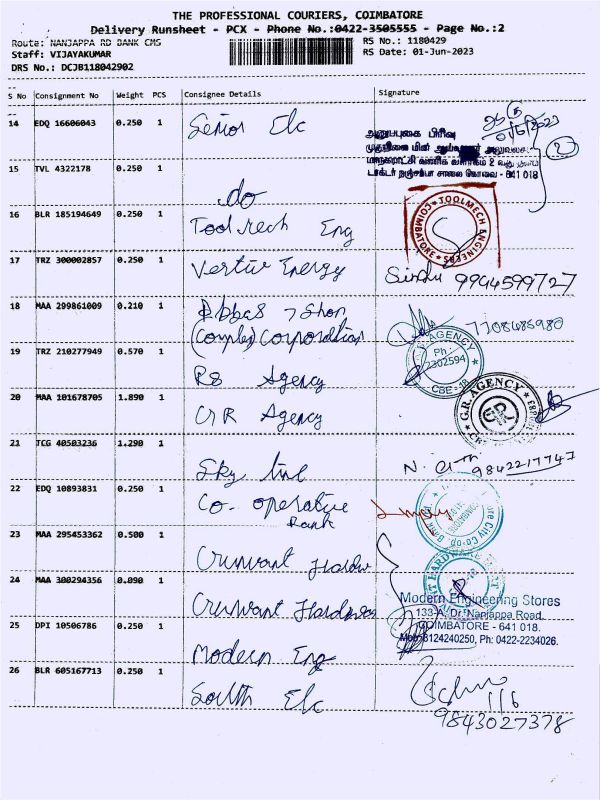 THE PROFESSIONAL COURIERS, COIMBATORE
Delivery Runsheet - PCX - Phone No.:0422-3505555 - Page No.:2
Route: NANJAPPA RD BANK CMS
RS No.: 1180429
Staff: VIJAYAKUMAR
RS Date: 01-Jun-2023
DRS No.: DCJB118042902
S No Consignment No Weight PCS Consignee Details Signature
14 EDQ 16606043 0.250 1 Senior Elc
அனுப்புகை பிரிவு
டாக்டர் நஞ்சப்பா சாலை கோவை - 641 018
15 TVL 4322178 0.250 1 do
16 BLR 185194649 0.250 1 Toolmech Eng
TOOLMECH ENGINEERS COIMBATORE
17 TRZ 300002857 0.250 1 Vertiv Energy Sindu 9944599727
18 MAA 299861009 0.210 1
(Complex) Corporation
19 TRZ 210277949 0.570 1 RS Agency
AGENCY Ph : 2302594 CBE-18
20 MAA 101678705 1.890 1 GR Agency
G.R. AGENCY
21 TCG 40503236 1.290 1 Sky line 9842217747
22 EDQ 10893831 0.250 1 Co-operative
Bank
23 MAA 295453362 0.500 1 Crunvant Hardw
24 MAA 300294356 0.090 1 Crunvant Hardwares
Modern Engineering Stores
133-A, Dr. Nanjappa Road,
COIMBATORE - 641 018.
Mob: 8124240250, Ph: 0422-2234026.
25 DPI 10506786 0.250 1 Modern Eng
26 BLR 605167713 0.250 1 South Elc
1/6
9843027378